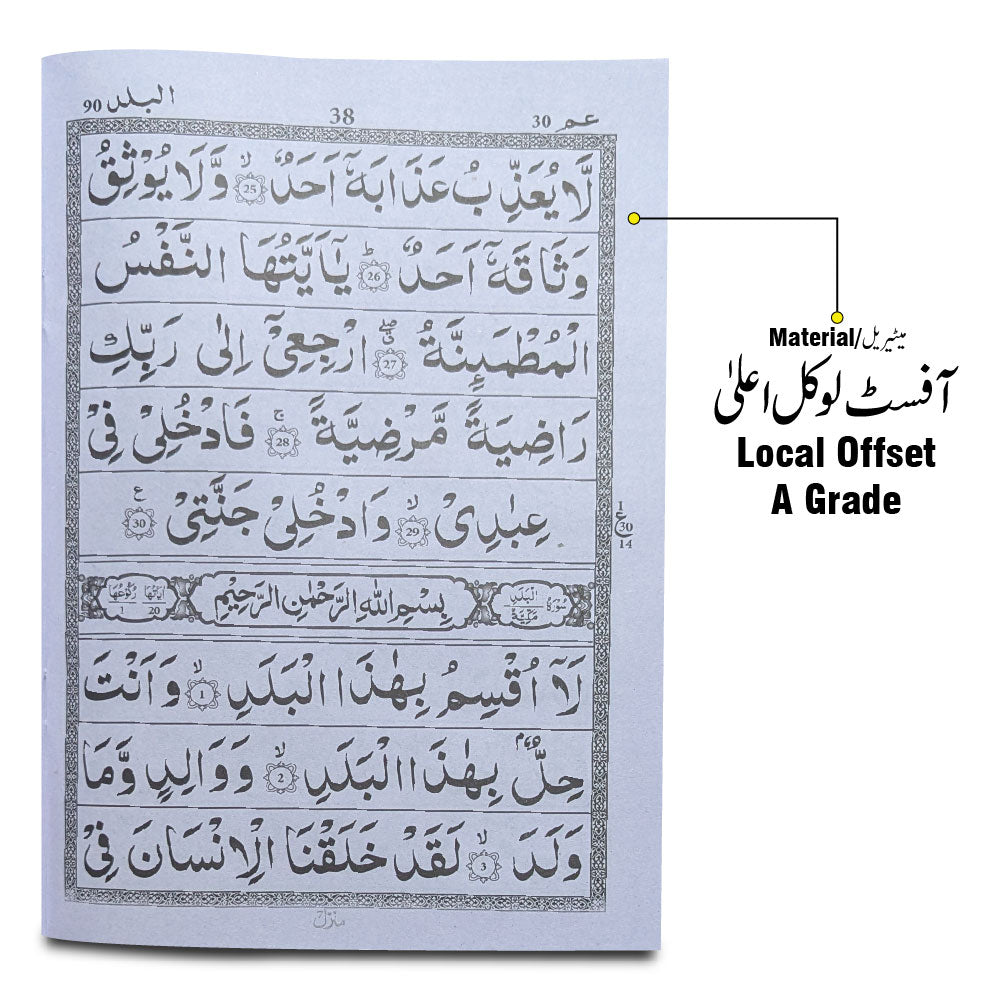 البلد 90
38
عم 30
لَّا يُعَذِّبُ عَذَابَهٗۤ اَحَدٌ ۙ 25 وَّلَا يُوْثِقُ
وَثَاقَهٗۤ اَحَدٌ ؕ 26 يٰۤاَيَّتُهَا النَّفْسُ
الْمُطْمَىِٕنَّةُ 27 ارْجِعِیْۤ اِلٰى رَبِّكِ
رَاضِيَةً مَّرْضِيَّةً ۚ 28 فَادْخُلِیْ فِیْ
عِبٰدِیْ ۙ 29 وَادْخُلِیْ جَنَّتِیْ 30 ع
1
ع 30
14
سُوْرَةُ الْبَلَدِ مَكِّيَّةٌ
بِسْمِ اللهِ الرَّحْمٰنِ الرَّحِيْمِ
اٰيَاتُهَا 20 رُكُوْعُهَا 1
لَاۤ اُقْسِمُ بِهٰذَا الْبَلَدِ ۙ 1 وَاَنْتَ
حِلٌّۢ بِهٰذَا الْبَلَدِ ۙ 2 وَوَالِدٍ وَّمَا
وَلَدَ ۙ 3 لَقَدْ خَلَقْنَا الْاِنْسَانَ فِیْ
منزل
Material/میٹیریل
آفسٹ لوکل اعلیٰ
Local Offset
A Grade